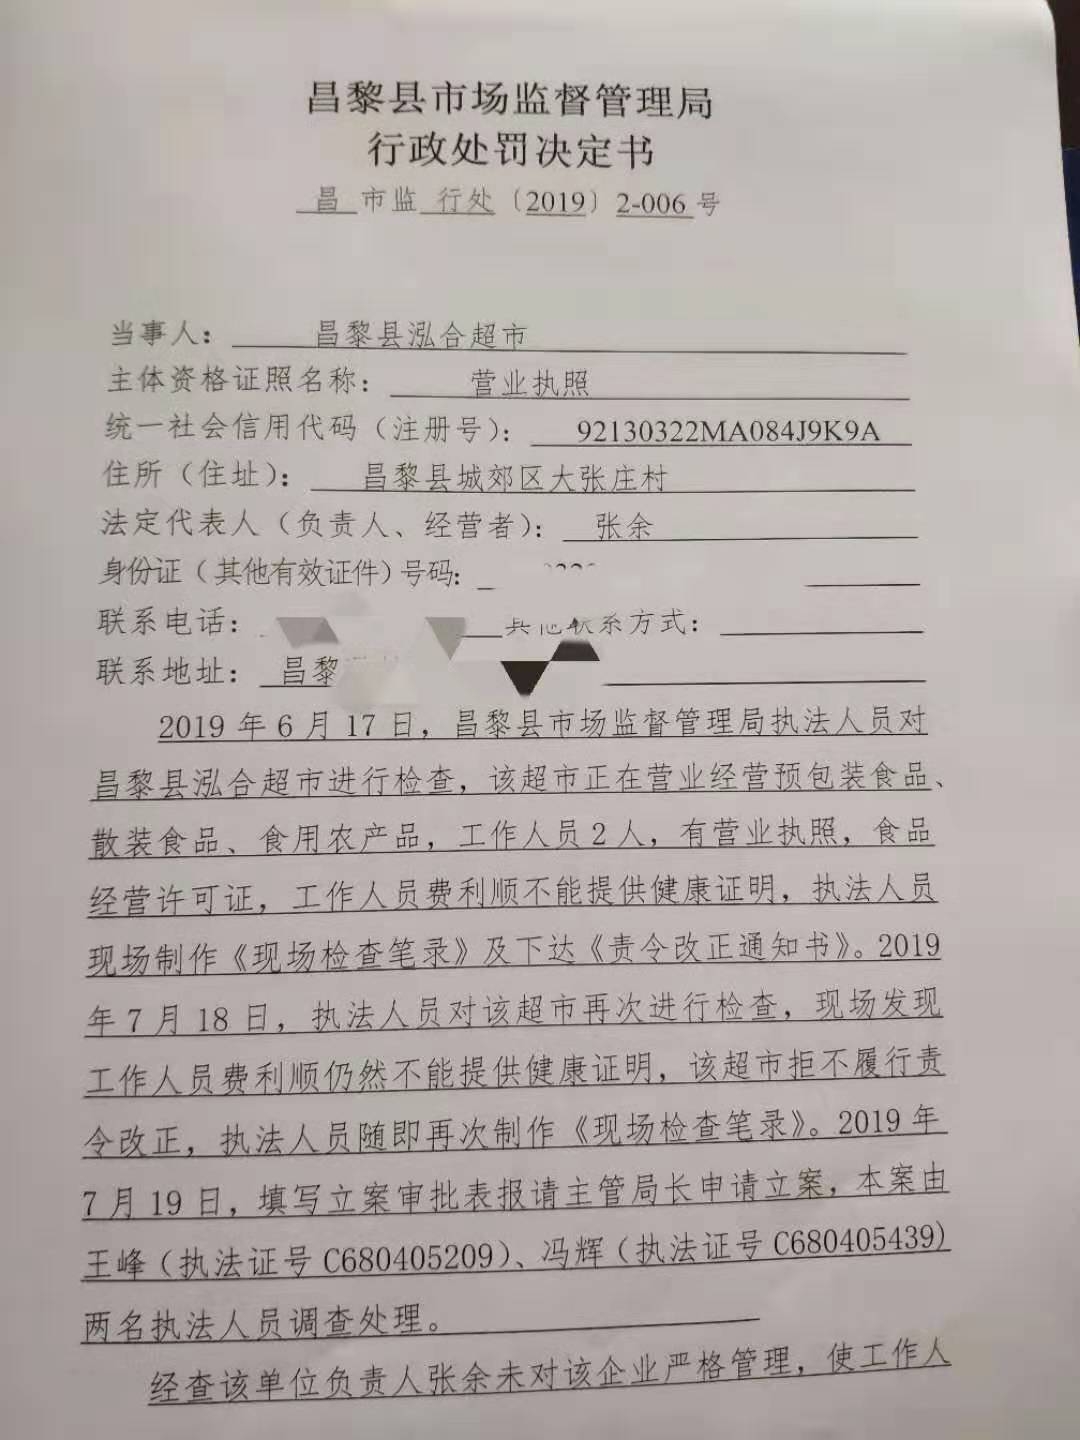 昌黎县市场监督管理局
行政处罚决定书
昌 市监 行处〔2019〕2-006 号
当事人： 昌黎县泓合超市
主体资格证照名称： 营业执照
统一社会信用代码（注册号）： 92130322MA084J9K9A
住所（住址）： 昌黎县城郊区大张庄村
法定代表人（负责人、经营者）： 张余
身份证（其他有效证件）号码：
联系电话： 其他联系方式：
联系地址： 昌黎
2019 年 6 月 17 日，昌黎县市场监督管理局执法人员对
昌黎县泓合超市进行检查，该超市正在营业经营预包装食品、
散装食品、食用农产品，工作人员 2 人，有营业执照，食品
经营许可证，工作人员费利顺不能提供健康证明，执法人员
现场制作《现场检查笔录》及下达《责令改正通知书》。2019
年 7 月 18 日，执法人员对该超市再次进行检查，现场发现
工作人员费利顺仍然不能提供健康证明，该超市拒不履行责
令改正，执法人员随即再次制作《现场检查笔录》。2019 年
7 月 19 日，填写立案审批表报请主管局长申请立案，本案由
王峰（执法证号 C680405209）、冯辉（执法证号 C680405439)
两名执法人员调查处理。
经查该单位负责人张余未对该企业严格管理，使工作人